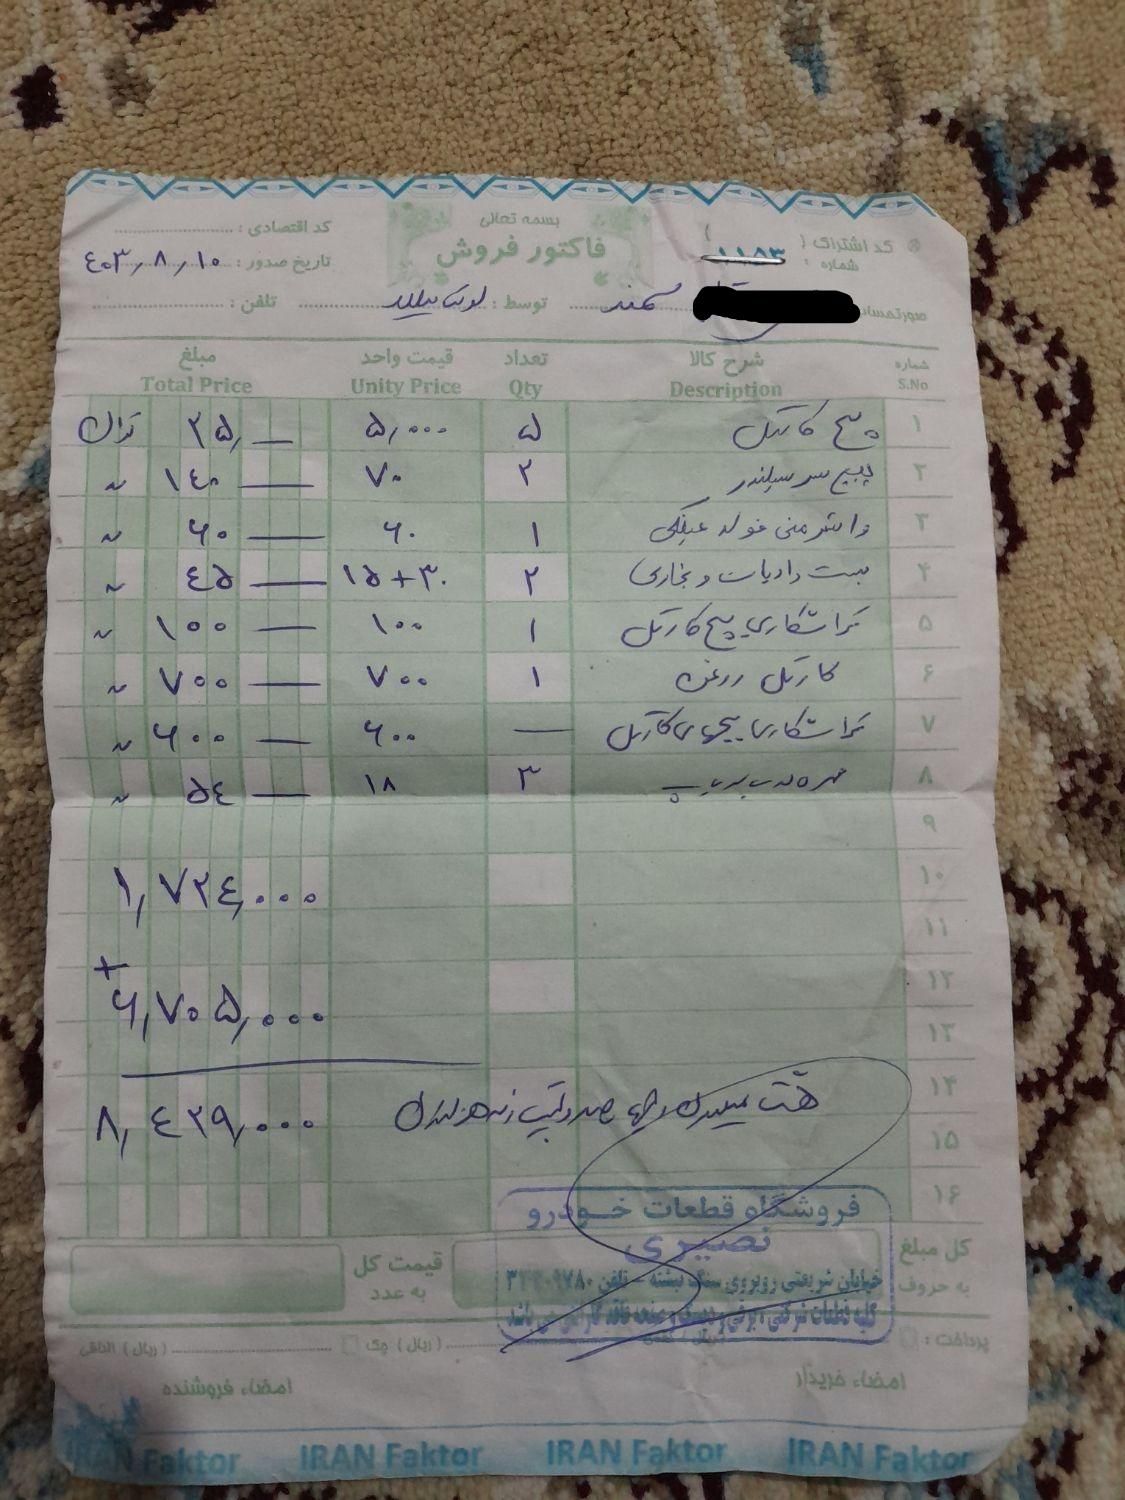 بسمه تعالی
فاکتور فروش
کد اشتراک ( )
شماره : ۱۱۵۳
کد اقتصادی :
تاریخ صدور : ۴۰۳٫۸٫۱۰
صورتحساب سمند توسط : تلفن :
شماره شرح کالا تعداد قیمت واحد مبلغ
S.No Description Qty Unity Price Total Price
۱ پیچ کارتل ۵ ۵٫۰۰۰ ۲۵٫ — تومان
۲ پیچ سرسیلندر ۲ ۷۰ ۱۴۰ — ~
۳ ۱ ۶۰ ۶۰ — ~
۴ بست و بخاری ۲ ۱۵+۳۰ ۴۵ — ~
۵ تراشکاری پیچ کارتل ۱ ۱۰۰ ۱۰۰ — ~
۶ کارتل روغن ۱ ۷۰۰ ۷۰۰ — ~
۷ تراشکاری پیچهای کارتل — ۶۰۰ ۶۰۰ — ~
۸ ۳ ۱۸ ۵۴ — ~
۹
۱۰ ۱٫۷۲۴٫۰۰۰
۱۱
۱۲ +
۱۳ ۶٫۷۰۵٫۰۰۰
۱۴ هشت میلیون و چهارصد و بیست و نه هزار تومان
۱۵ ۸٫۴۲۹٫۰۰۰
۱۶
کل مبلغ به حروف
قیمت کل به عدد
فروشگاه قطعات خودرو
نصیری
خیابان شریعتی روبروی سنگ نبشته - تلفن
کلیه قطعات شرکتی ، برقی و دیسک و صفحه فاقد گارانتی می باشد
پرداخت : ( ریال ) نقدی ( ریال ) چک ( ریال ) الباقی
امضاء خریدار امضاء فروشنده
IRAN Faktor IRAN Faktor IRAN Faktor IRAN Faktor